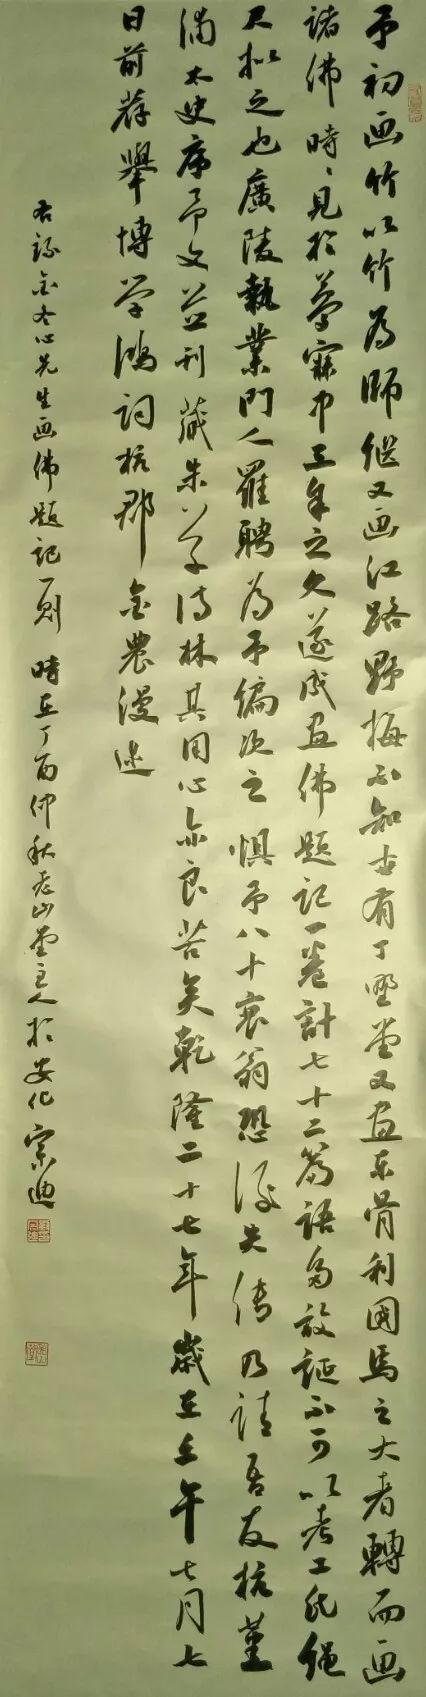 予初画竹以竹为師継又画江路野梅不知古有丁野堂又画東骨利國馬之大者轉而画
諸佛時〻見於夢寐中三年之久遂成画佛題記一卷計七十二篇語多放誕不可以考工氏绳
尺拟之也廣陵執業門人羅聘为予编次之惧予八十衰翁恐後失传乃請吾友杭堇
浦太史序予文並刊藏朱草诗林其用心亦良苦矣乾隆二十七年歲在壬午七月七
日前荐舉博学鴻词杭郡金農漫述
右録金冬心先生画佛題記一則 時在丁酉仲秋老山堂主人於安化 宗迪